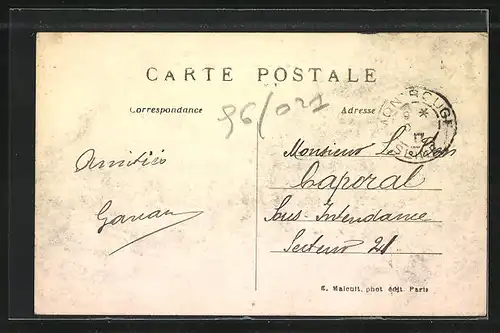 CARTE POSTALE
Correspondance
96/021
Adresse
MONTROUGE
Monsieur
Caporal
Sous-Intendance
Secteur 21
Amitiés
E. Malcuit, phot édit. Paris